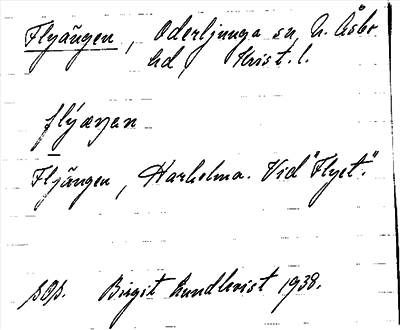 Flyängen, Oderljunga sn, N. Åsbo
hd, Krist. l.
flýæŋen
Flyängen, "Flyet".
sgs. Birgit Lundkvist 1938.